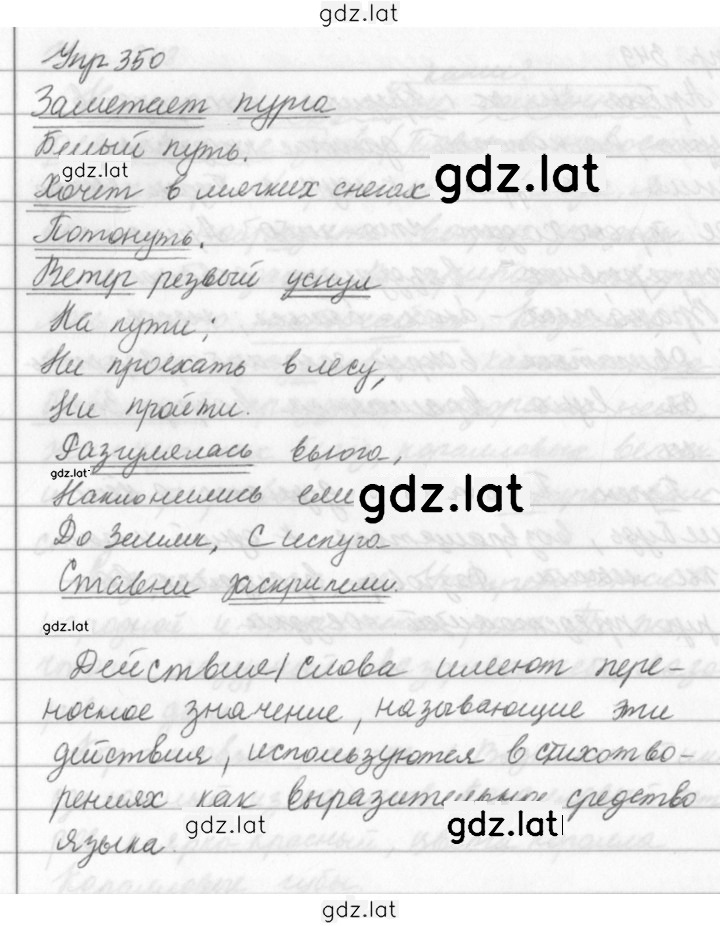 gdz.lat
Упр 350
Заметает пурга
Белый путь.
gdz.lat
Хочет в мягких снегах
gdz.lat
Потонуть.
Ветер резвый уснул
На пути;
Ни проехать в лесу,
Ни пройти.
Разгулялась вьюга,
gdz.lat
Наклонились ели
gdz.lat
До земли, С испуга
Ставни заскрипели.
gdz.lat
Действия/слова имеют пере-
носное значение, называющие эти
действия, используются в стихотво-
рениях как выразительное средство
языка.
gdz.lat
gdz.lat
gdz.lat